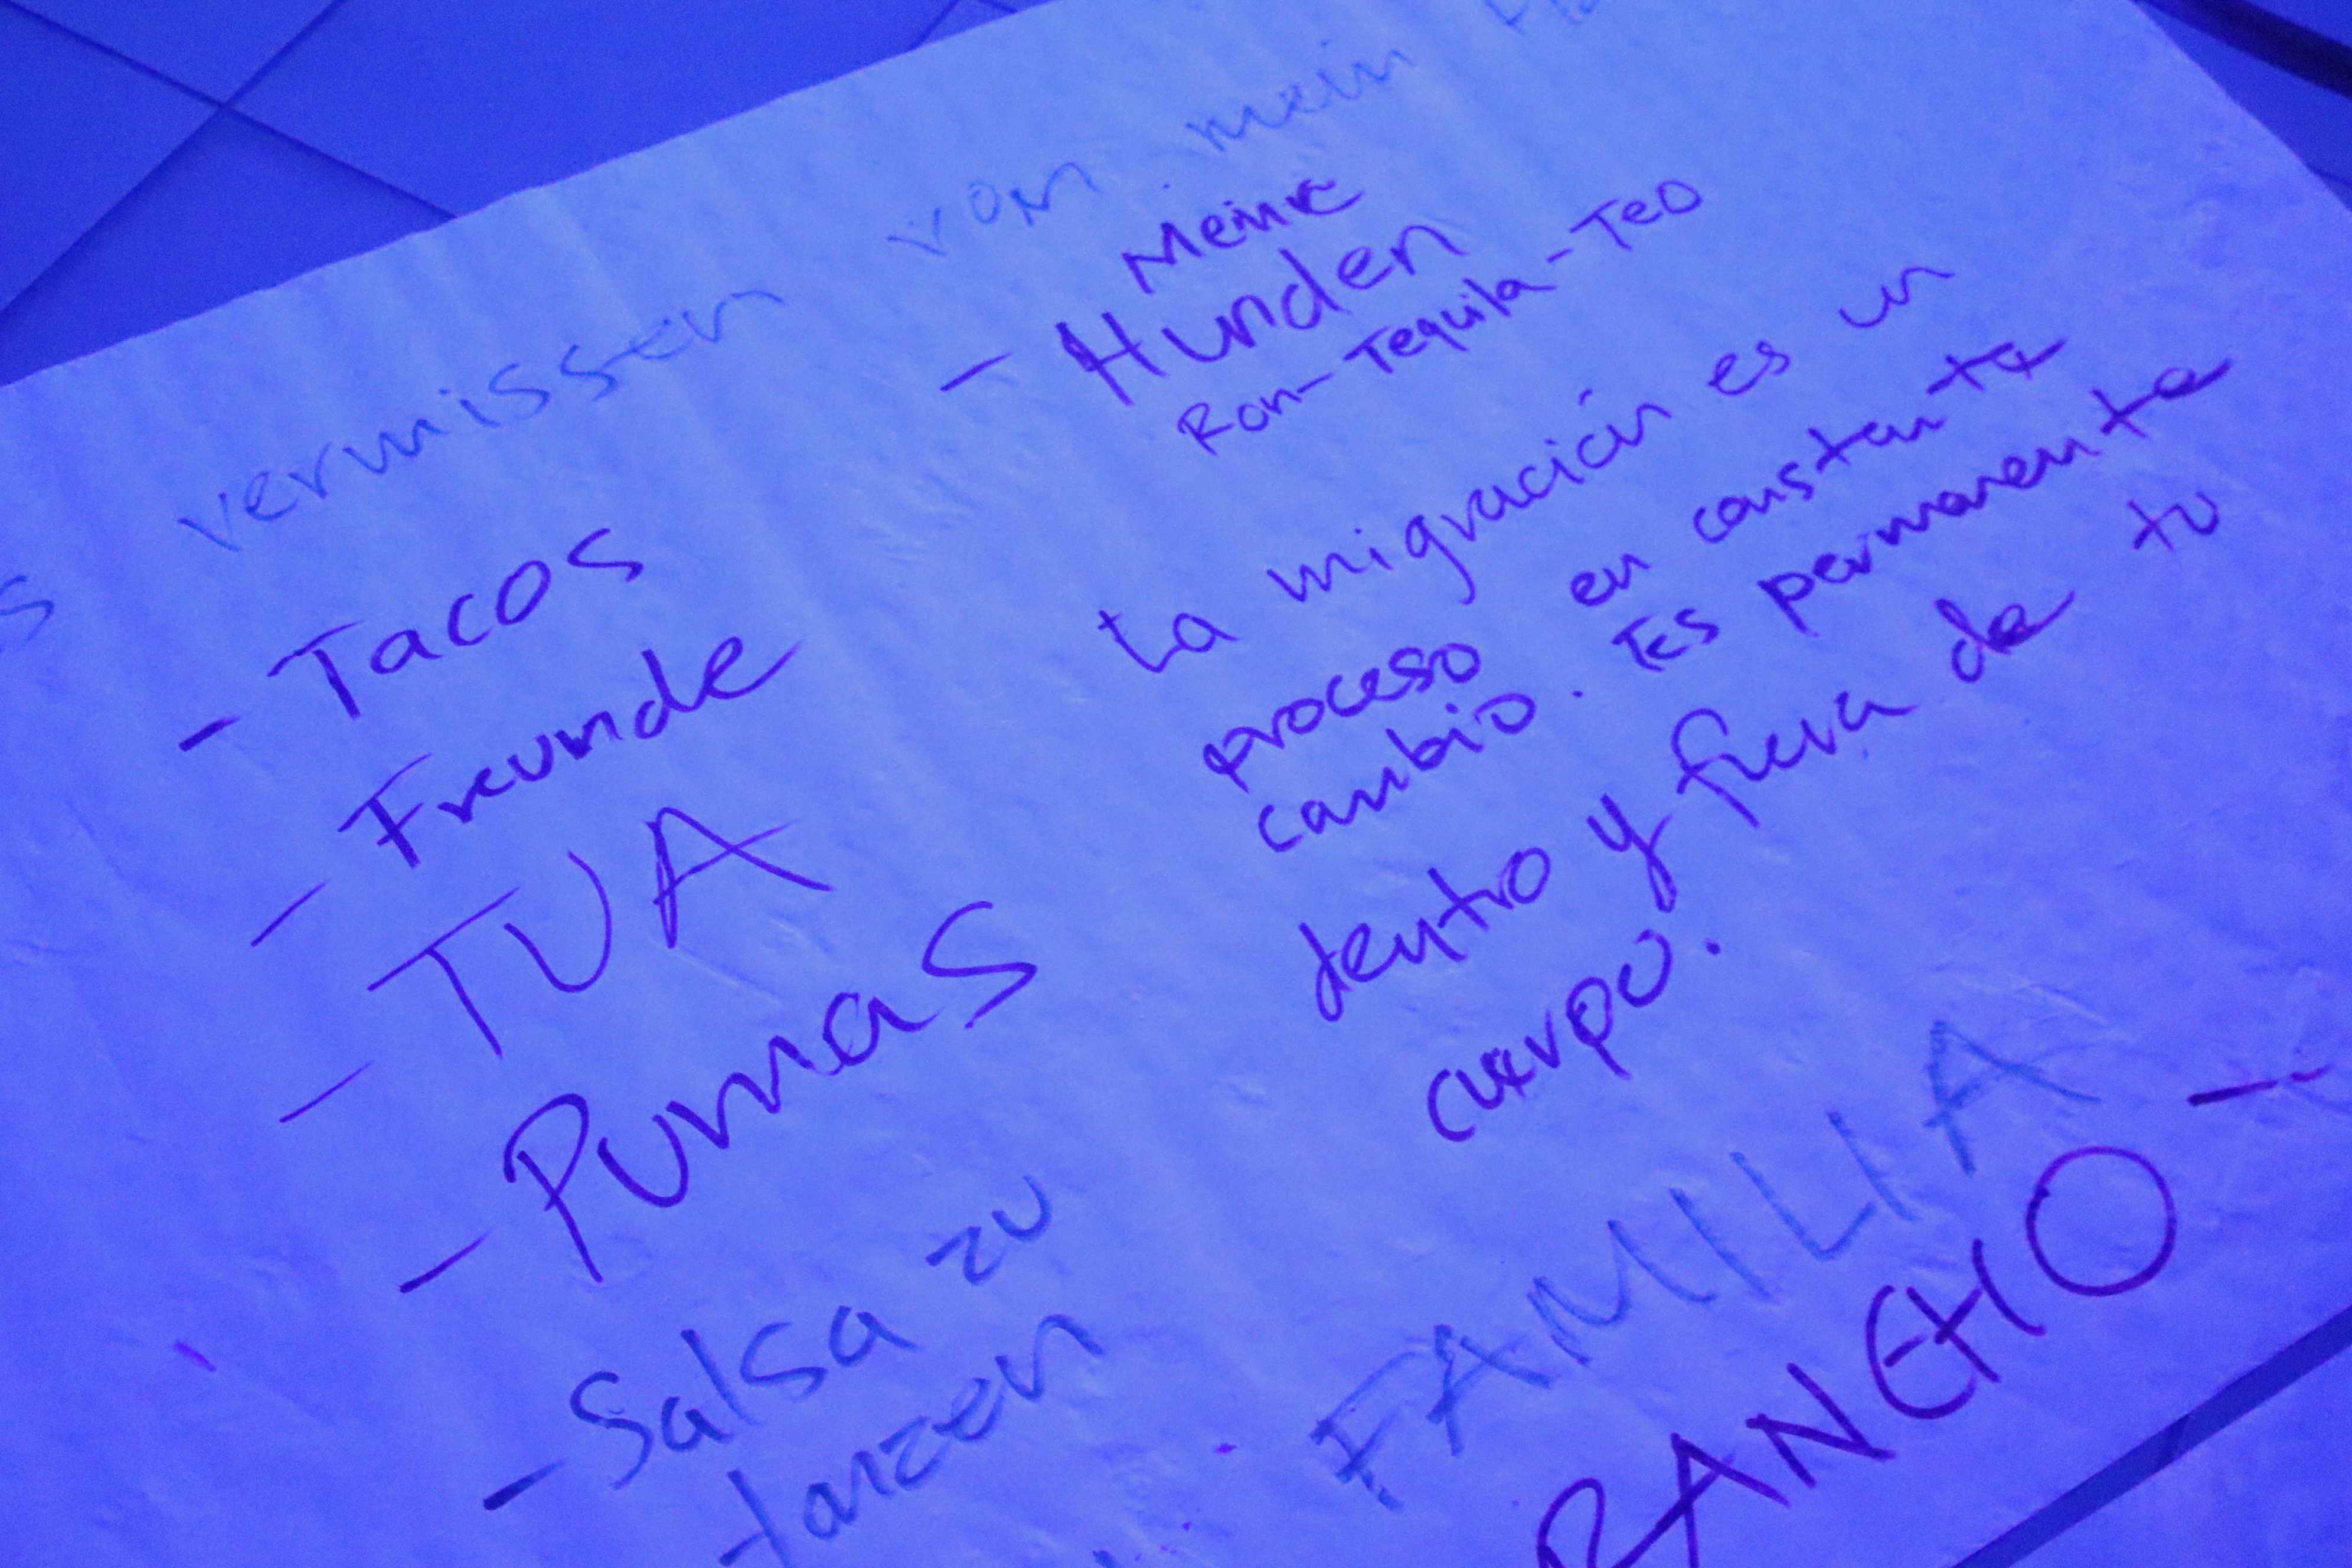 vermissen von mein
- Tacos
- Freunde
- TUA
- Pumas
- Salsa zu
tanzen
Meine
- Hunden
Ron-Tequila-Teo
La migración es un
proceso en constante
cambio. Es permanente
dentro y fuera de tu
cuerpo.
FAMILIA
RANCHO -